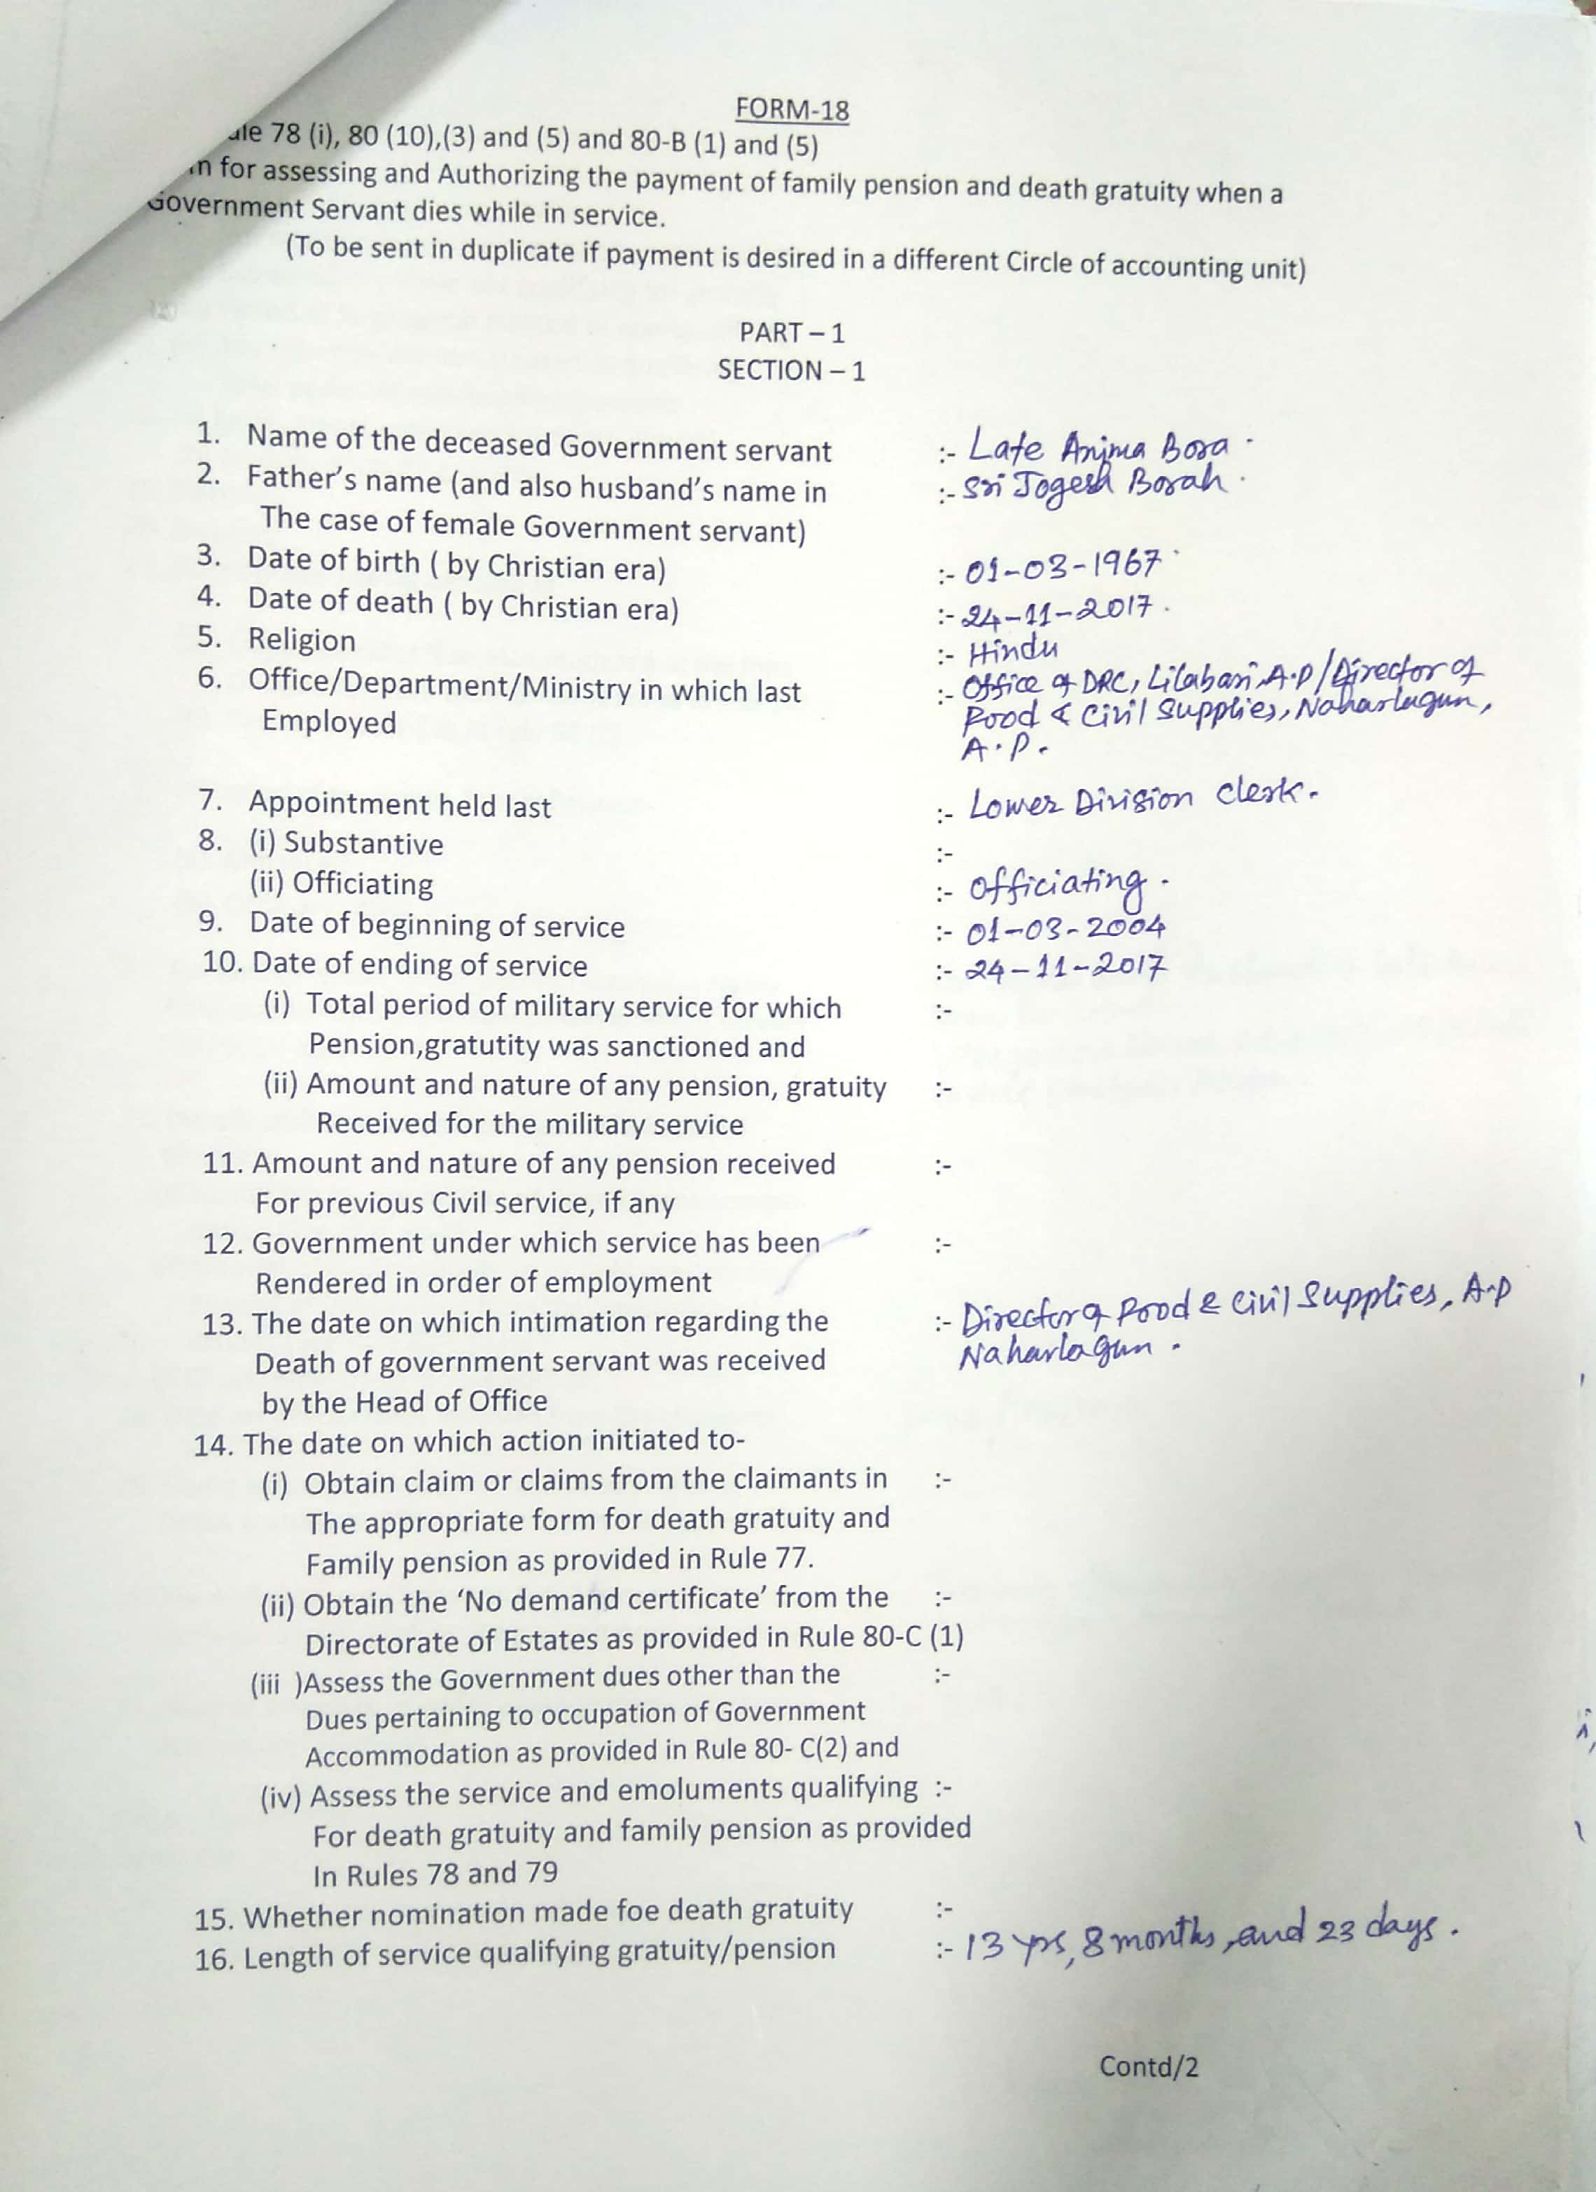 FORM-18
ule 78 (i), 80 (10),(3) and (5) and 80-B (1) and (5)
n for assessing and Authorizing the payment of family pension and death gratuity when a
Government Servant dies while in service.
(To be sent in duplicate if payment is desired in a different Circle of accounting unit)
PART – 1
SECTION – 1
1. Name of the deceased Government servant :- Late Anjma Bora.
2. Father's name (and also husband's name in :- Sri Jogesh Borah.
The case of female Government servant)
3. Date of birth ( by Christian era) :- 01-03-1967.
4. Date of death ( by Christian era) :- 24-11-2017.
5. Religion :- Hindu
6. Office/Department/Ministry in which last :- Office of DRC, Lilabari A.P/Director of
Employed Food & Civil Supplies, Naharlagun,
A.P.
7. Appointment held last :- Lower Division Clerk.
8. (i) Substantive :-
(ii) Officiating :- Officiating.
9. Date of beginning of service :- 01-03-2004
10. Date of ending of service :- 24-11-2017
(i) Total period of military service for which :-
Pension,gratutity was sanctioned and
(ii) Amount and nature of any pension, gratuity :-
Received for the military service
11. Amount and nature of any pension received :-
For previous Civil service, if any
12. Government under which service has been :-
Rendered in order of employment
13. The date on which intimation regarding the :- Director of Food & Civil Supplies, A.P
Death of government servant was received Naharlagun.
by the Head of Office
14. The date on which action initiated to-
(i) Obtain claim or claims from the claimants in :-
The appropriate form for death gratuity and
Family pension as provided in Rule 77.
(ii) Obtain the ‘No demand certificate’ from the :-
Directorate of Estates as provided in Rule 80-C (1)
(iii )Assess the Government dues other than the :-
Dues pertaining to occupation of Government
Accommodation as provided in Rule 80- C(2) and
(iv) Assess the service and emoluments qualifying :-
For death gratuity and family pension as provided
In Rules 78 and 79
15. Whether nomination made foe death gratuity :-
16. Length of service qualifying gratuity/pension :- 13 yrs, 8 months, and 23 days.
Contd/2